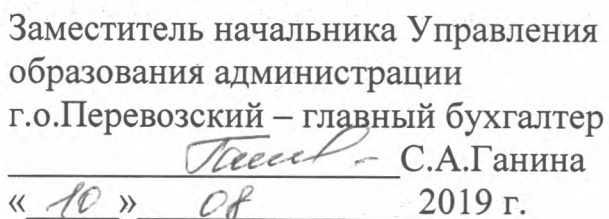 Заместитель начальника Управления
образования администрации
г.о.Перевозский – главный бухгалтер
С.А.Ганина
« 10 » 08 2019 г.